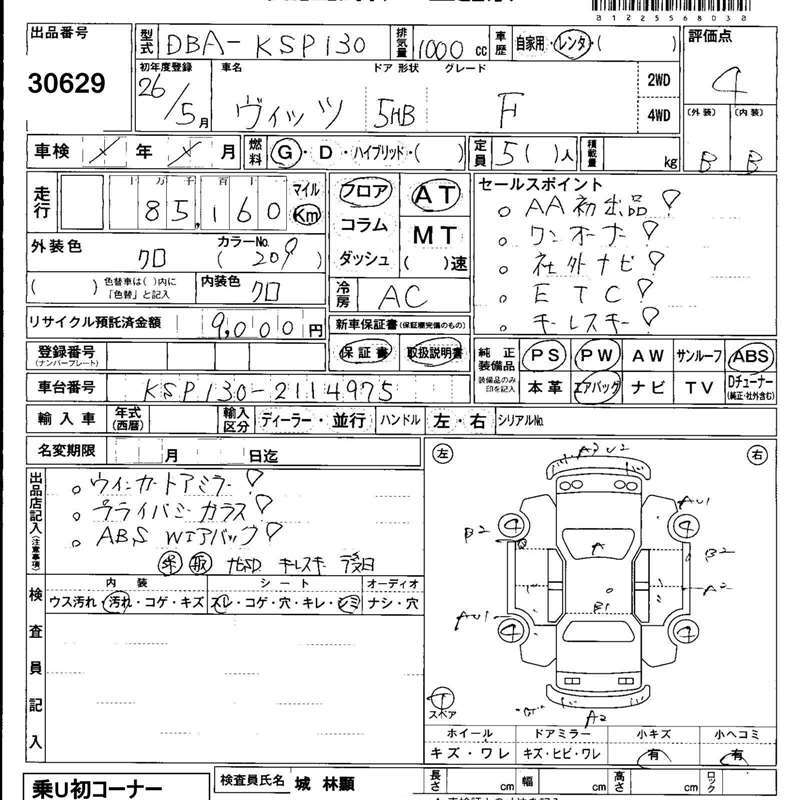 01225568030
出品番号
30629
型式 DBA-KSP130 排気量 1000 cc 車歴 自家用・レンタ・( )
評価点
4
初年度登録 車名 ドア 形状 グレード
26/5月 ヴィッツ 5HB F 2WD
4WD
(外装) (内装)
B B
車検 × 年 × 月 燃料 G・D・ハイブリッド・( ) 定員 5( )人 積載量 kg
走行 十 万 千 百 十 マイル
85,160 Km
フロア AT
コラム MT
ダッシュ ( )速
セールスポイント
○ AA初出品!
○ ワンオーナー!
○ 社外ナビ!
○ ETC!
○ キーレスキー!
外装色 クロ カラーNo. ( 209 )
( ) 色替車は( )内に「色替」と記入 内装色 クロ
冷房 AC
リサイクル預託済金額 9,000 円
新車保証書(保証欄完備のもの)
保証書 取扱説明書
登録番号
(ナンバープレート)
純正装備品 PS PW AW サンルーフ ABS
装備品のみ印を記入 本革 エアバッグ ナビ TV Dチューナー
(純正・社外含む)
車台番号 KSP130-2114975
輸入車 年式(西暦) 輸入区分 ディーラー・並行 ハンドル 左・右 シリアルNo.
名変期限 月 日迄
出品店記入(注意事項)
○ ウィンカードアミラー!
○ プライバシーガラス!
○ ABS Wエアバック!
取 ナビSD キーレスキー 後日
検査員記入
内装 シート オーディオ
ウス汚れ・汚れ・コゲ・キズ スレ・コゲ・穴・キレ・シミ ナシ・穴
左 右
A3 U2
AU1
4 4
B2
B2
A
A2
B1
AU1
4 4
T
スペア
A2
ホイール ドアミラー 小キズ 小ヘコミ
キズ・ワレ キズ・ヒビ・ワレ 有 有
乗U初コーナー
検査員氏名 城 林顯
長さ cm 幅 cm 高さ cm ロック